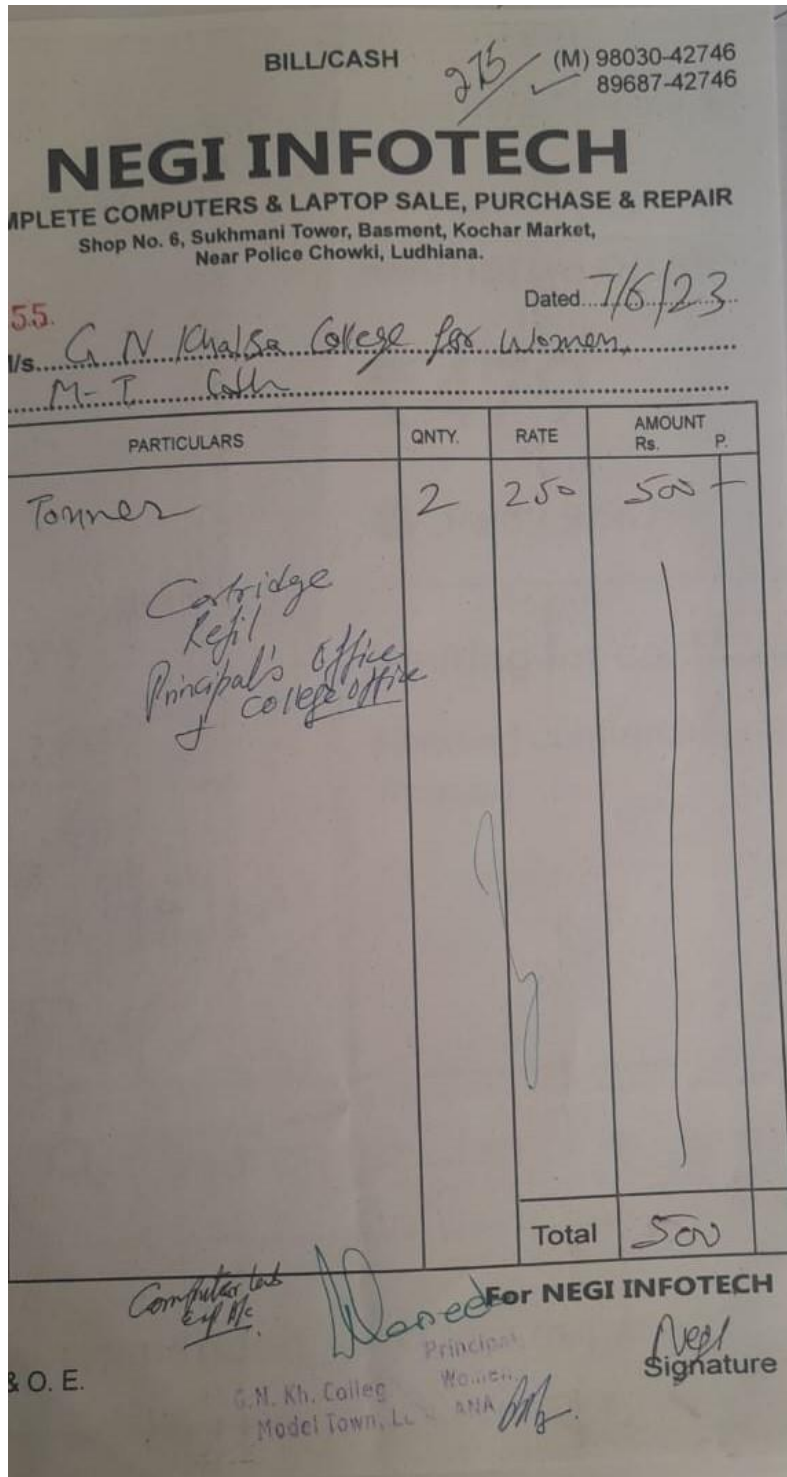 BILL/CASH
275
(M) 98030-42746
89687-42746
NEGI INFOTECH
MPLETE COMPUTERS & LAPTOP SALE, PURCHASE & REPAIR
Shop No. 6, Sukhmani Tower, Basment, Kochar Market,
Near Police Chowki, Ludhiana.
55.
Dated...7/6/23
/s. G N Khalsa College for Women
M-T
PARTICULARS QNTY. RATE AMOUNT
Rs. P.
Tonner 2 250 500 -
Cartridge
Refil
Principal's Office
+ College office
Total 500
Computer Lab
Exp A/c
For NEGI INFOTECH
Principal
Negi
Signature
& O. E.
G.N. Kh. Colleg Women
Model Town, L ANA